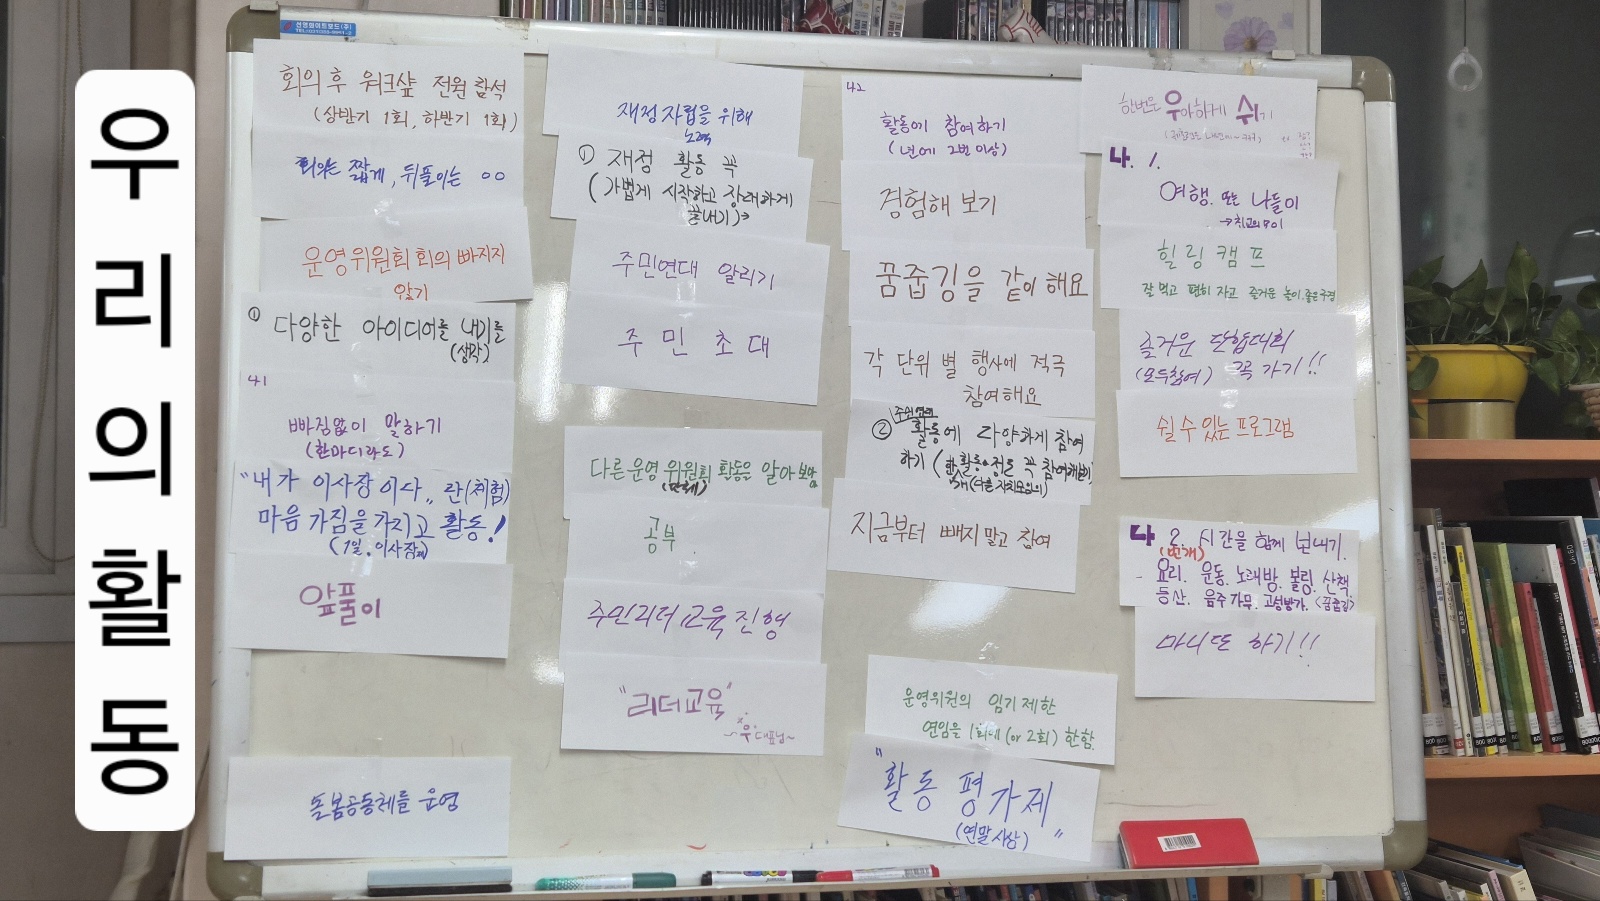 우리의 활동
선영화이트보드(주)
회의 후 워크샾 전원 참석
(상반기 1회, 하반기 1회)
회의는 짧게, 뒤풀이는 ○○
운영위원회 회의 빠지지
않기
① 다양한 아이디어를 내기를
(생각)
41
빠짐없이 말하기
(한마디라도)
"내가 이사장이사" 란(체험)
마음 가짐을 가지고 활동!
(1일 이사장제)
앞풀이
돌봄공동체를 운영
재정자립을 위해
노력
① 재정 활동 꼭
(가볍게 시작하고 장대하게
끝내기)→
주민연대 알리기
주민 초대
다른 운영위원회 활동을 알아봄
(단체)
공부
주민리더교육 진행
"리더교육"
~우대표님~
42
활동에 참여하기
(년에 2번 이상)
경험해 보기
꿈줍깅을 같이 해요
각 단위 별 행사에 적극
참여해요
주민연대
② 활동에 다양하게 참여
하기 (한 활동 정도 꼭 참여해보기)
개(다른 자치모임의)
지금부터 빼지말고 참여
운영위원의 임기 제한
연임을 1회에 (or 2회) 한함.
"활동 평가제"
(연말시상)
한번은 우아하게 쉬기
나. 1.
여행. 또는 나들이
힐링 캠프
잘 먹고 편히 자고 즐거운 놀이.좋은구경
즐거운 단합대회
(모두참여) 꼭 가기!!
쉴 수 있는 프로그램
나 2. 시간을 함께 보내기.
(번개)
요리. 운동. 노래방. 볼링. 산책.
등산. 음주가무. 고성방가. <꿈줍깅>
마니또 하기!!